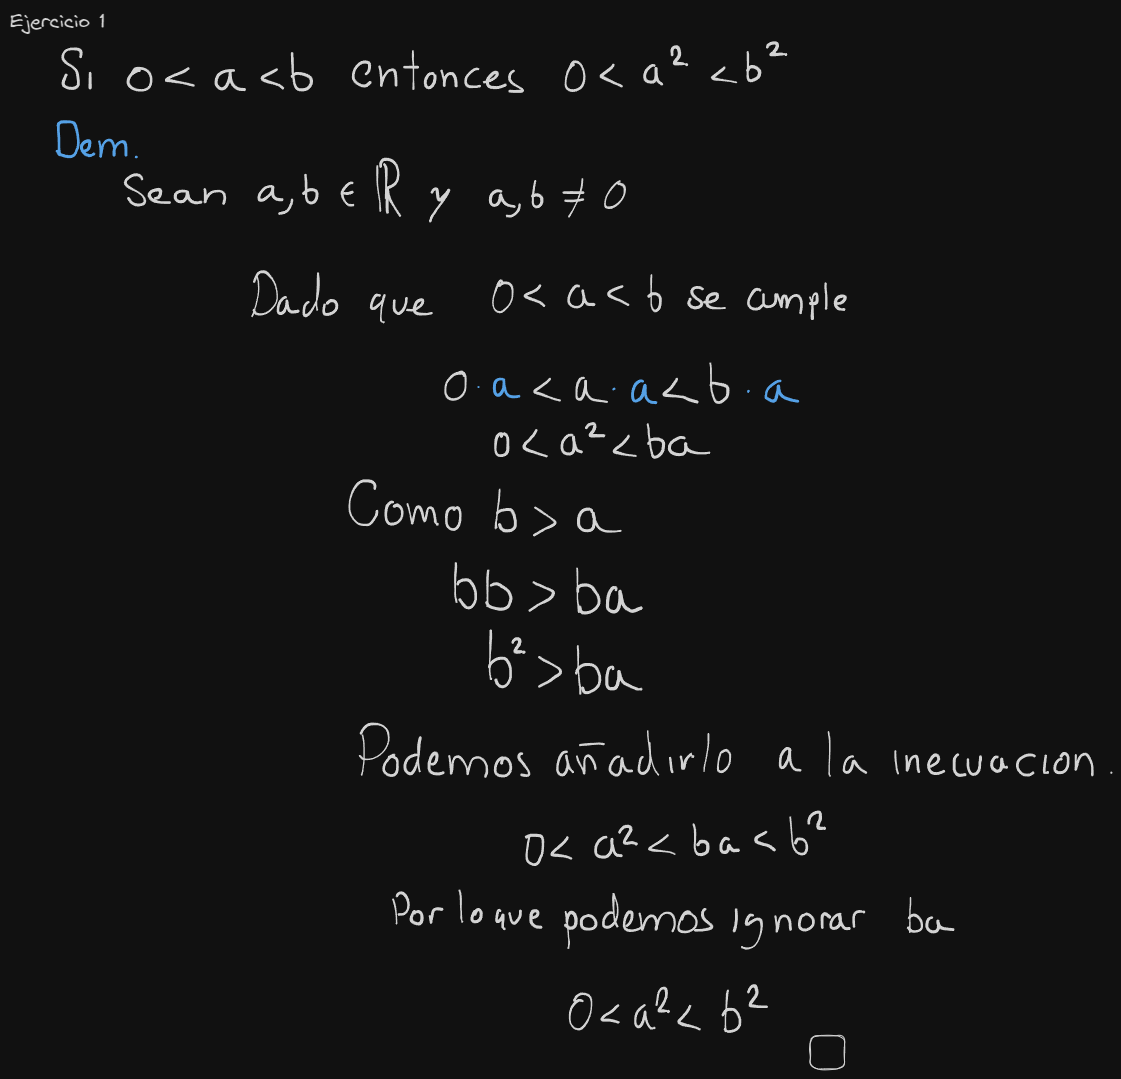 Ejercicio 1
Si 0 < a < b entonces 0 < a² < b²
Dem.
Sean a, b ∈ ℝ y a, b ≠ 0
Dado que 0 < a < b se cumple
0 · a < a · a < b · a
0 < a² < ba
Como b > a
bb > ba
b² > ba
Podemos añadirlo a la inecuacion.
0 < a² < ba < b²
Por lo que podemos ignorar ba
0 < a² < b²